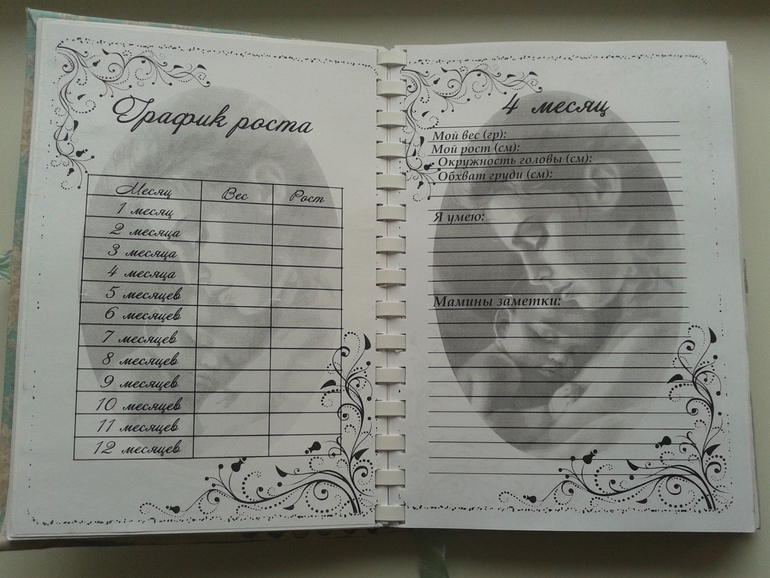 График роста
Месяц Вес Рост
1 месяц
2 месяца
3 месяца
4 месяца
5 месяцев
6 месяцев
7 месяцев
8 месяцев
9 месяцев
10 месяцев
11 месяцев
12 месяцев
4 месяц
Мой вес (гр):
Мой рост (см):
Окружность головы (см):
Обхват груди (см):
Я умею:
Мамины заметки: